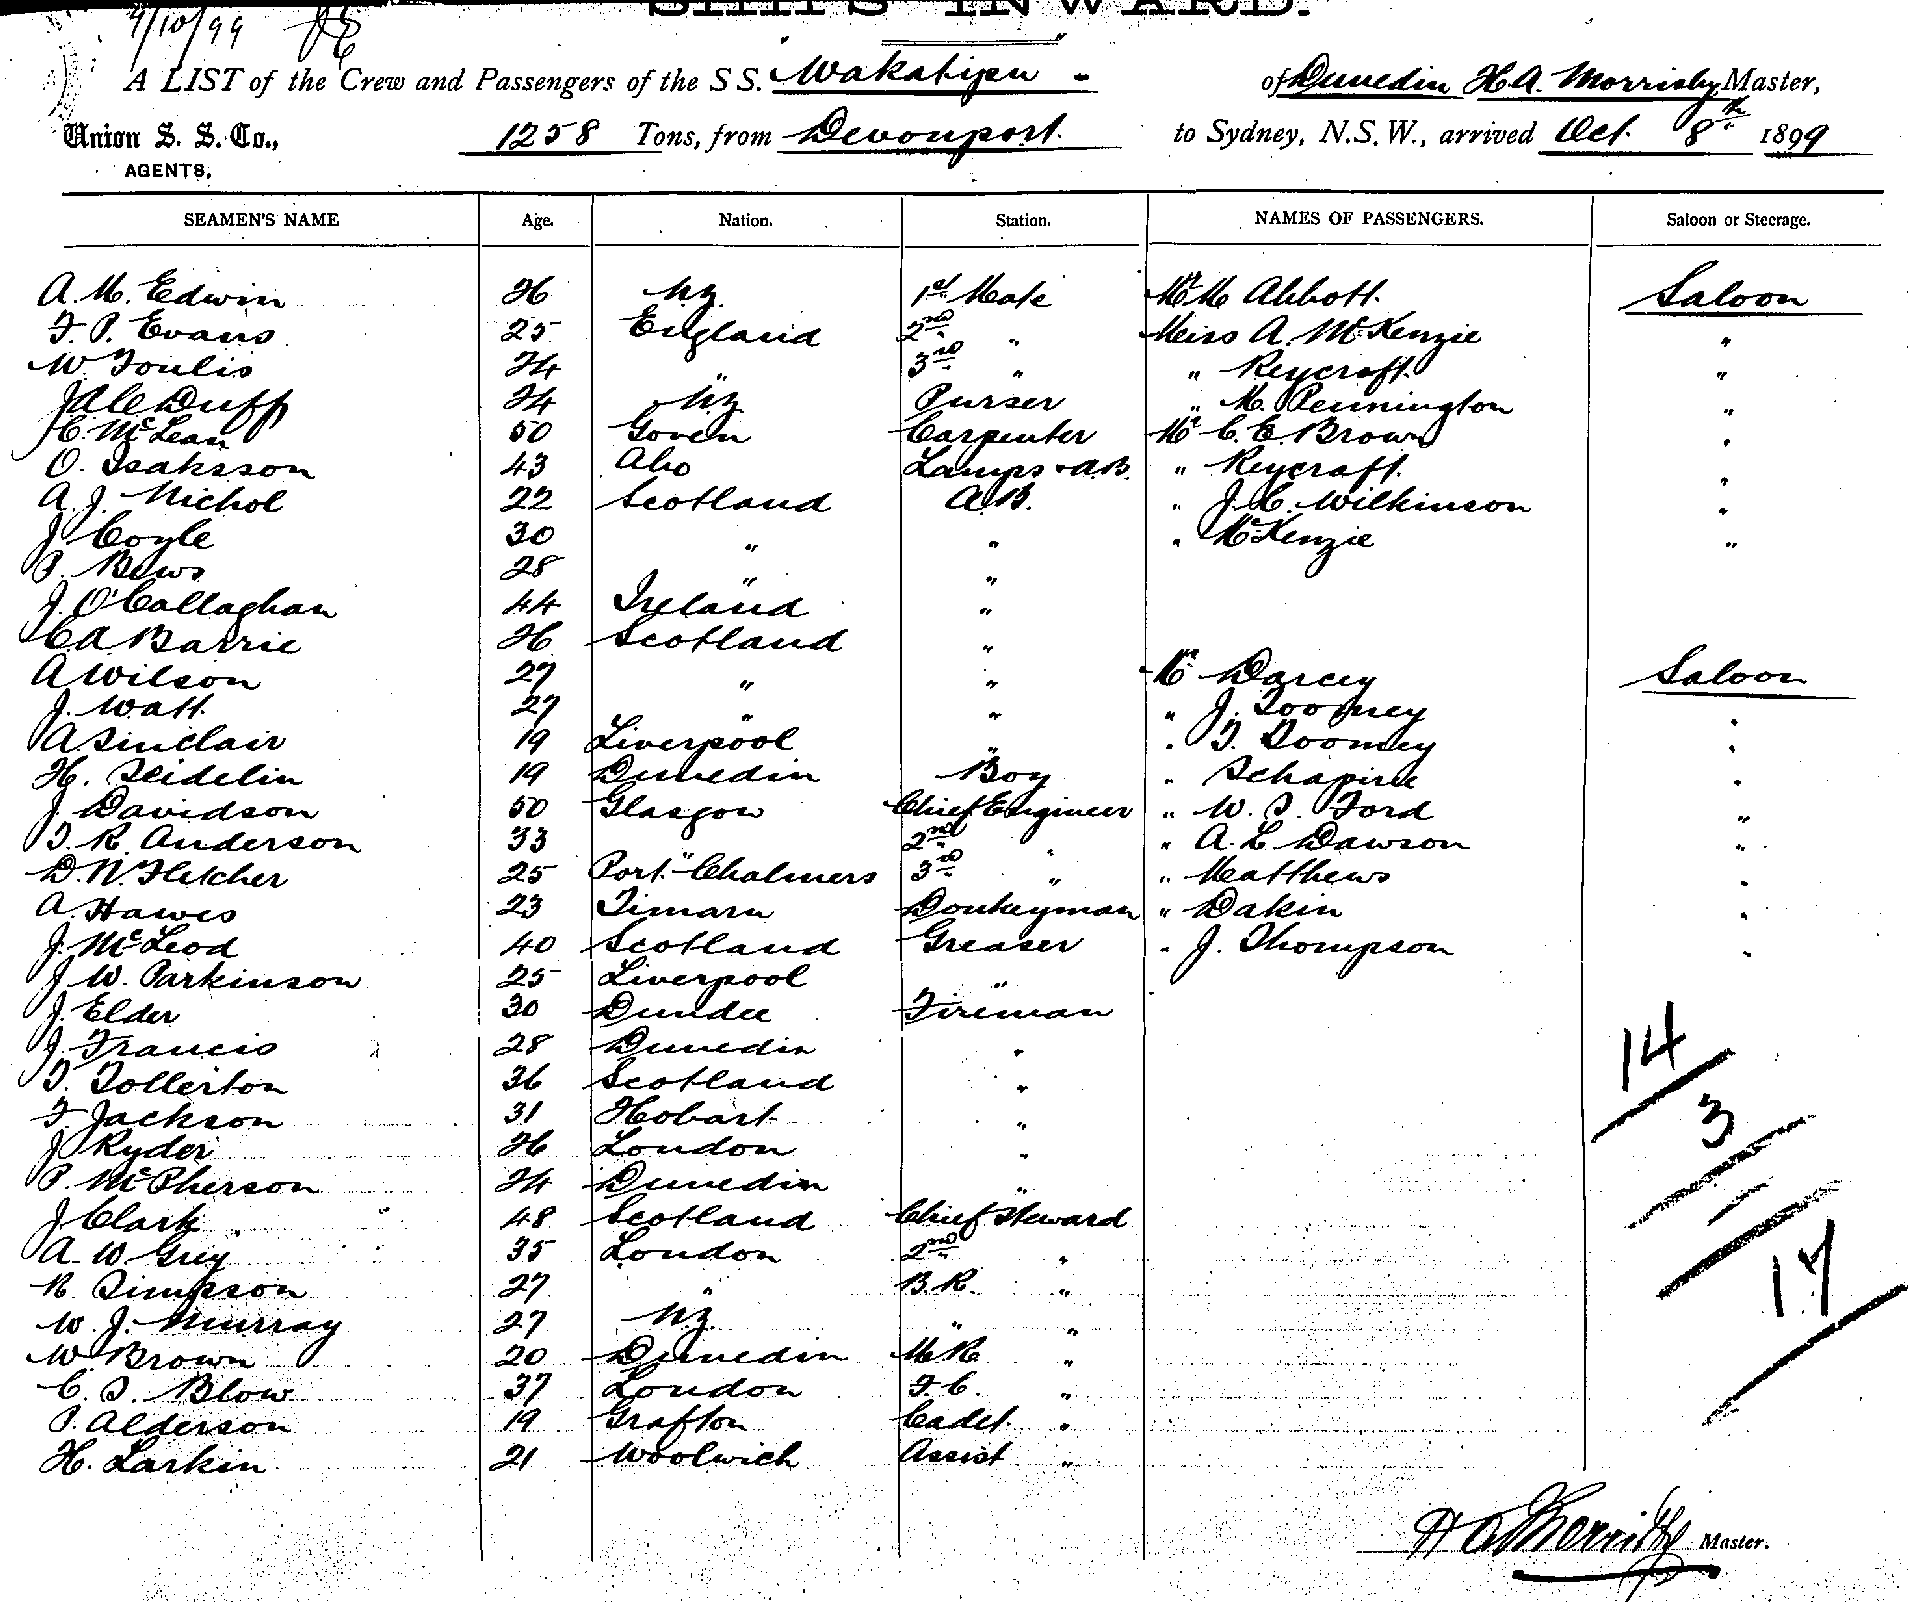 9/10/99
SHIPS INWARD.
A LIST of the Crew and Passengers of the S S. Wakatipu - of Dunedin H.A. Morrisby Master,
Union S. S. Co., 1258 Tons, from Devonport. to Sydney, N.S.W., arrived Oct. 8th 1899
AGENTS,
SEAMEN'S NAME Age. Nation. Station. NAMES OF PASSENGERS. Saloon or Steerage.
A. M. Edwin 26 N.Z. 1st Mate Mr M Abbott. Saloon
F. P. Evans 25 England 2nd " Miss A. McKenzie "
W. Foulis 24 " 3rd " " Reycraft. "
J A C Duff 24 N.Z. Purser " M. Pennington "
C. McLean 50 Goven Carpenter Mr C. E. Brown "
O. Isaksson 43 Abo Lamps & A.B. " Reycraft. "
A. J. Nichol 22 Scotland A.B. " J. C. Wilkinson "
J Coyle 30 " " " McKenzie "
P. Bews 28 " "
J. O'Callaghan 44 Ireland "
C A Barrie 26 Scotland "
A Wilson 27 " " Mr Darcey Saloon
J. Watt 27 " " " J. Toomey "
A Sinclair 19 Liverpool " " T. Toomey "
H. Seidelin 19 Dunedin Boy " Schapira "
J Davidson 50 Glasgow Chief Engineer " W. T. Ford "
T. R. Anderson 33 " 2nd " " A. L. Dawson "
D. N. Fletcher 25 Port Chalmers 3rd " " Matthews "
A. Hawes 23 Timaru Donkeyman " Dakin "
J. McLeod 40 Scotland Greaser " J. Thompson "
J. W. Parkinson 25 Liverpool "
J. Elder 30 Dundee Fireman
J. Francis 28 Dunedin " 14
T. Tollerton 36 Scotland "
F. Jackson 31 Hobart " 3
J Ryder 26 London "
P. McPherson 24 Dunedin "
J Clark 48 Scotland Chief Steward
A. W Grey 35 London 2nd " 17
R. Simpson 27 " B.R. "
W. J. Murray 27 N.Z. " "
W. Brown 20 Dunedin M R "
C. T. Blow 37 London F. C. "
P. Alderson 19 Grafton Cadet. "
H. Larkin 21 Woolwich Assist "
H A Morrisby Master.